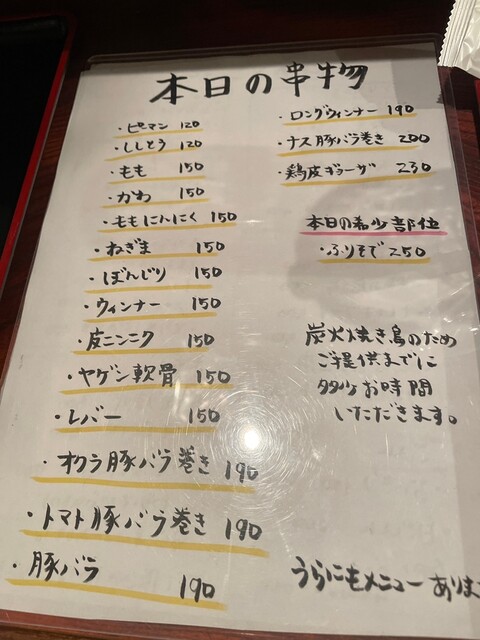 本日の串物
・ピーマン 120
・ししとう 120
・もも 150
・かわ 150
・ももにんにく 150
・ねぎま 150
・ぼんじり 150
・ウィンナー 150
・皮ニンニク 150
・ヤゲン軟骨 150
・レバー 150
・オクラ豚バラ巻き 190
・トマト豚バラ巻き 190
・豚バラ 190
・ロングウィンナー 190
・ナス豚バラ巻き 200
・鶏皮ギョーザ 230
本日の希少部位
・ふりそで 250
炭火焼き鳥のため
ご提供までに
多少お時間
いただきます。
うらにもメニューありま